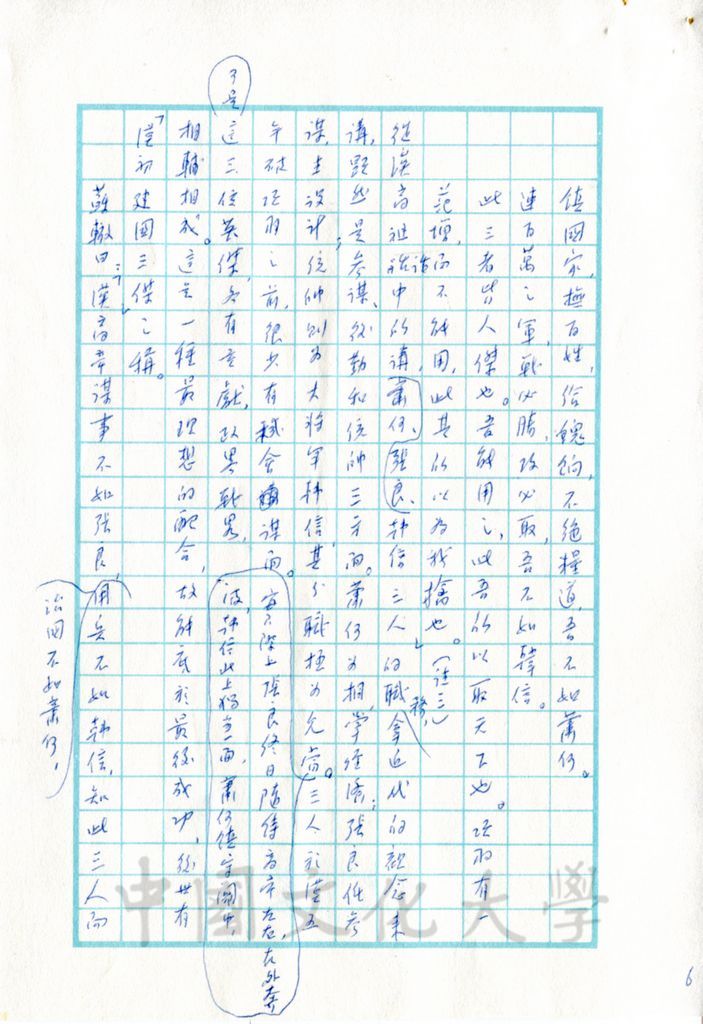 鎮國家,撫百姓,給餽餉,不絕糧道,吾不如蕭何。
連百萬之軍,戰必勝,攻必取,吾不如韓信。
此三者皆人傑也。吾能用之,此吾所以取天下也。項羽有一
范增,而不能用,此其所以為我擒也。」(註三)
從漢高祖話中所講,蕭何、張良、韓信三人的職務,拿近代的觀念來
講,顯然是參謀、後勤和統帥三方面。蕭何為相,學經濟;張良任參
謀,主設計;統帥則為大將軍韓信,其分職極為允當。三人於漢五
年破項羽之前,很少有機會謀面。實際上張良終日隨侍高帝左右,在外奔
波,韓信此上獨當一面,蕭何鎮守關中,
於是這三位英傑,各有貢獻,
相輔相成。這是一種最理想的配合,故能底於最後成功,後世有
「漢初建國三傑」之稱。
蘇轍曰:「漢高帝謀事不如張良,用兵不如韓信,治國不如蕭何,知此三人而
中國文化大學
6